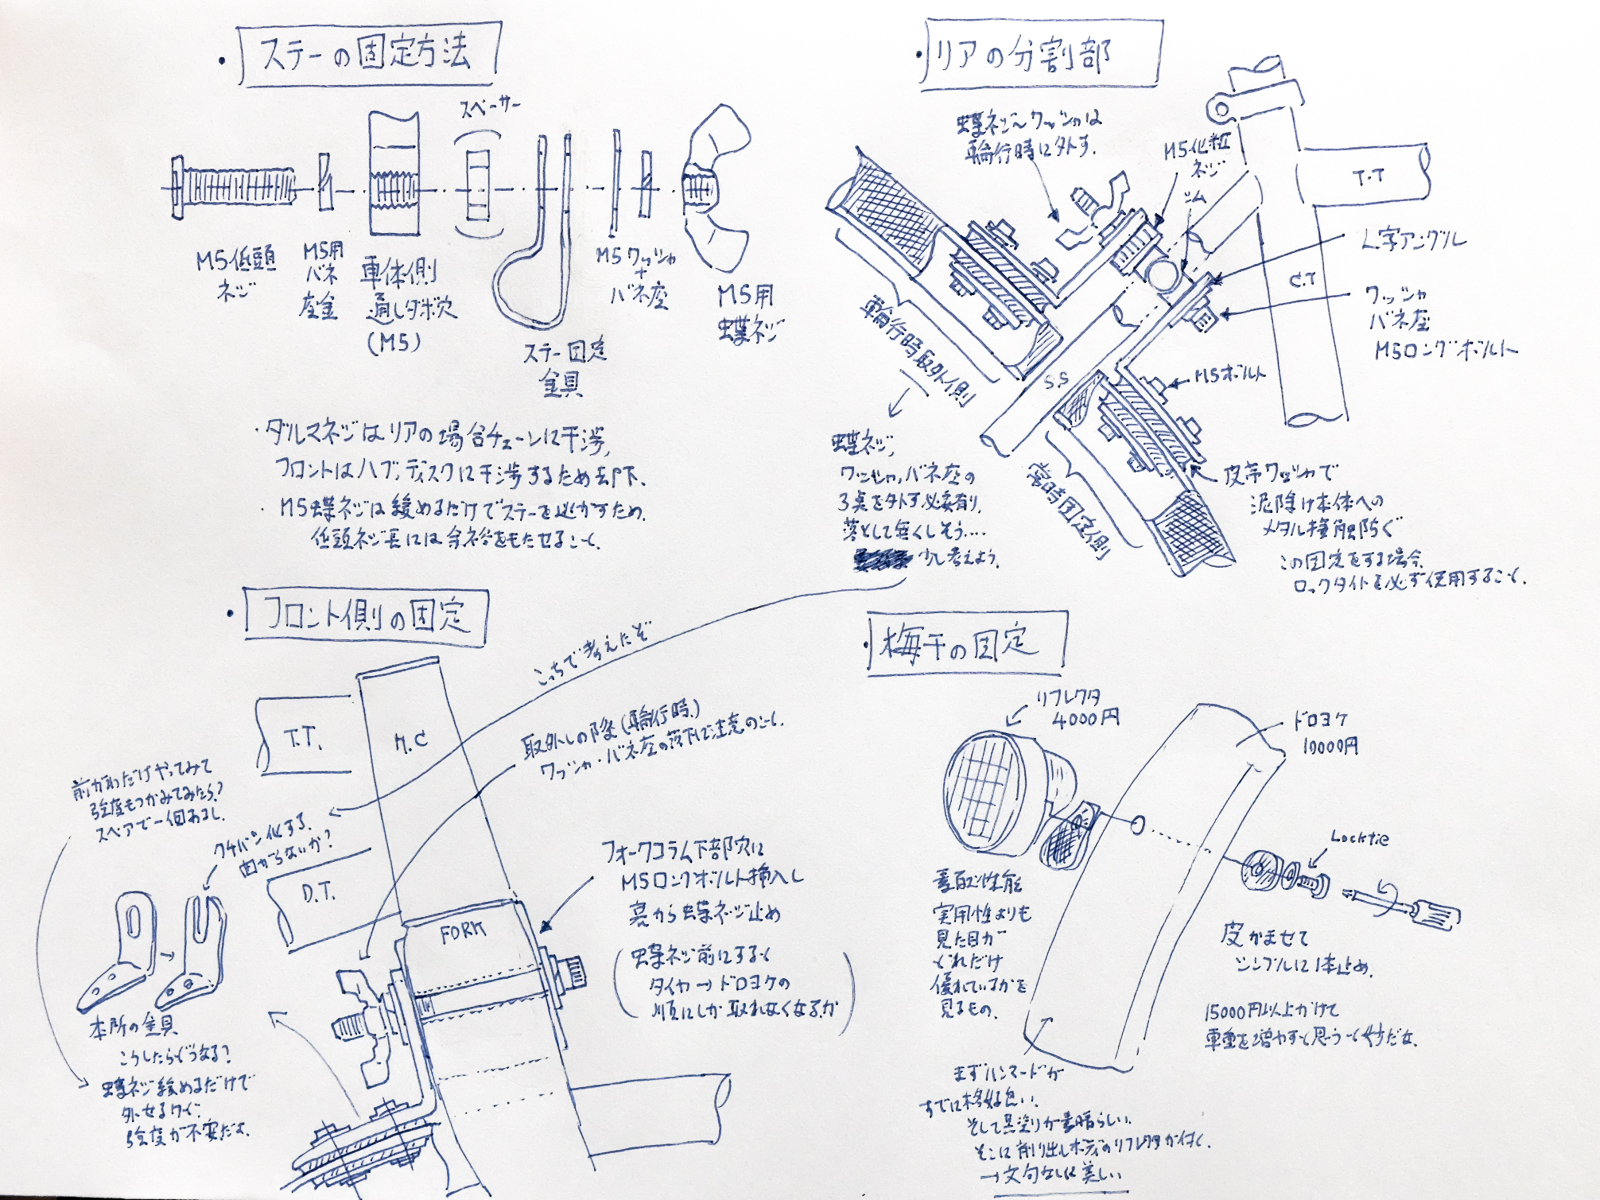 ・ステーの固定方法
スペーサー
M5低頭
ネジ
M5用
バネ
座金
車体側
通しダボ穴
(M5)
ステー固定
金具
M5ワッシャ
+
バネ座
M5用
蝶ネジ
・ダルマネジはリアの場合チェーンに干渉,
フロントはハブ,ディスクに干渉するため却下.
・M5蝶ネジは緩めるだけでステーを逃がすため.
低頭ネジ長には余裕をもたせること.
・リアの分割部
蝶ネジ〜ワッシャは
輪行時に外す.
M5化粧
ネジ
ゴム
T.T
L字アングル
C.T
ワッシャ
バネ座
M5ロングボルト
S.S
M5ボルト
輪行時取外側
常時固定側
蝶ネジ,
ワッシャ,バネ座の
3点を外す必要有り.
落として無くしそう....
少し考えよう.
皮革ワッシャで
泥除け本体への
メタル接触防ぐ
この固定をする場合,
ロックタイトを必ず使用すること.
・フロント側の固定
こっちで考えたぞ
T.T.
H.C
D.T.
FORK
取外しの際(輪行時)
ワッシャ・バネ座の落下に注意のこと.
前がわだけやってみて
強度もつかみてみたら?
スペアで一個あるし.
クチバシ化する.
曲がらないか?
本所の金具
こうしたらどうなる?
蝶ネジ緩めるだけで
外せるケド.
強度が不安だよ.
フォークコラム下部穴に
M5ロングボルト挿入し
裏から蝶ネジ止め
(蝶ネジ前にすると
タイヤ→ドロヨケの
順にしか取れなくなるか)
・梅干の固定
リフレクタ
4000円
ドロヨケ
10000円
Locktie
実用性よりも
見た目が
どれだけ
優れているかを
見るもの.
皮かませて
シンプルに1本止め.
15000円以上かけて
車重を増やすと思うと妙だな.
まずハンマードが
すでに格好良い.
そして黒塗りが素晴らしい.
そこに削り出しボディのリフレクタが付く.
→文句なしに美しい